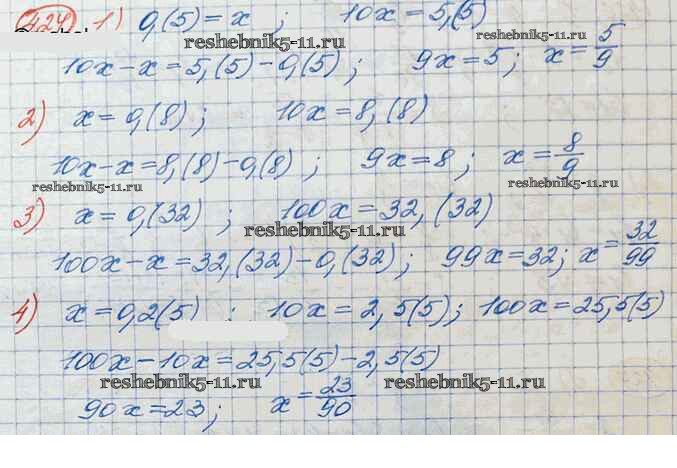 424 1) 0,(5)=x ; 10x=5,(5)
reshebnik5-11.ru reshebnik5-11.ru
10x-x=5,(5)-0,(5); 9x=5; x=5/9
2) x=0,(8); 10x=8,(8)
10x-x=8,(8)-0,(8); 9x=8; x=8/9
reshebnik5-11.ru reshebnik5-11.ru
3) x=0,(32) ; 100x=32,(32)
reshebnik5-11.ru
100x-x=32,(32)-0,(32); 99x=32; x=32/99
4) x=0,2(5) ; 10x=2,5(5); 100x=25,5(5)
100x-10x=25,5(5)-2,5(5)
reshebnik5-11.ru reshebnik5-11.ru
90x=23; x=23/90